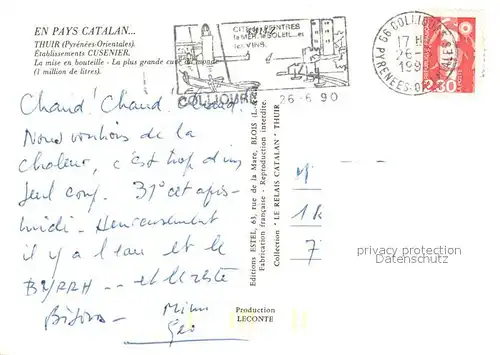 EN PAYS CATALAN...
THUIR (Pyrénées-Orientales).
Établissements CUSENIER.
La mise en bouteille - La plus grande cuve du monde
(1 million de litres).
CITE DES PEINTRES
la MER, le SOLEIL.. et
les VINS.
COLLIOURE
26-6 90
66 COLLIOURE
17 H
26-
199
PYRENEES-O
2,30
Chaud! Chaud! Chaud!
Nous voulions de la
chaleur, c'est trop d'un
seul coup. 37° cet après-
midi. Heureusement
il y a l'eau et le
BYRRH -- et le reste
Bisous -
Editions ESTEL, 63, rue de la Mare, BLOIS
Fabrication française - Reproduction interdite.
Collection "LE RELAIS CATALAN" THUIR
Production
LECONTE
privacy protection
Datenschutz